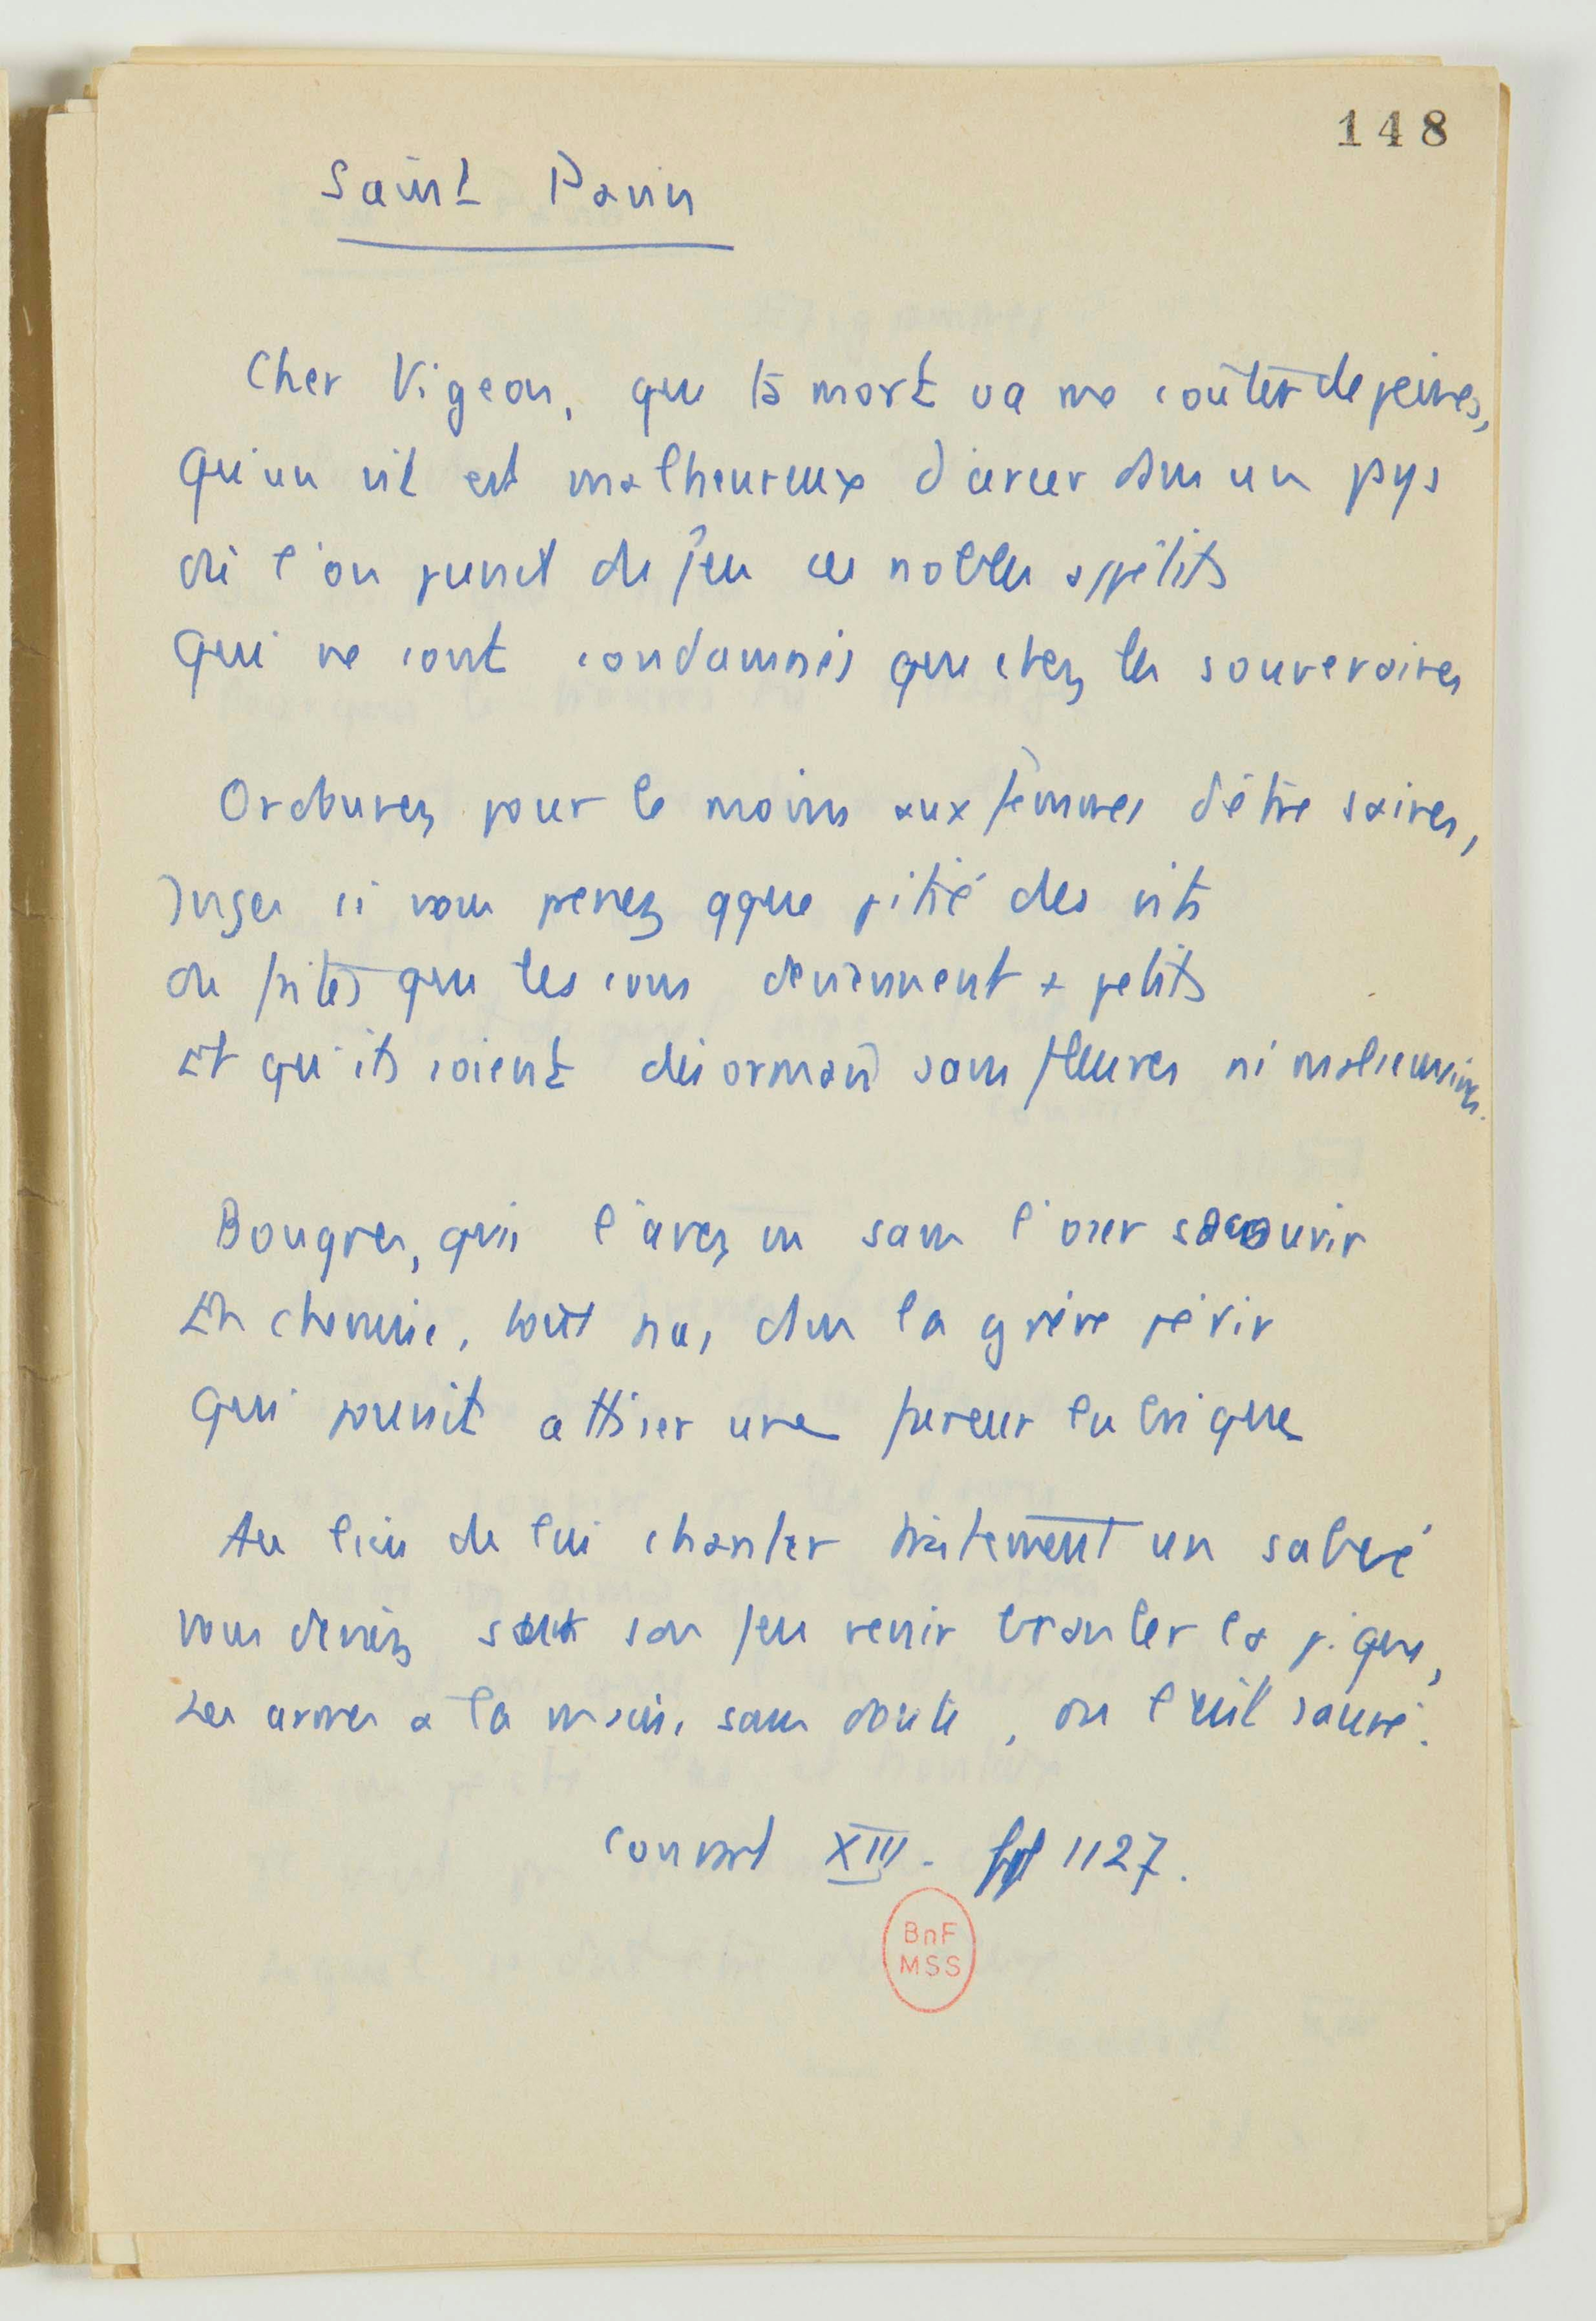 148
Saint Pavin
Cher Vigeon, que ta mort va me coûter de peines,
Qu'un vit est malheureux d'arcer dans un pys
où l'on punit du feu ces nobles appétits
Qui ne sont condamnés que chez les souveraines
Ordonnez pour le moins aux femmes d'être saines,
Juges si vous prenez qque pitié des vits
ou faites que les cons deviennent + petits
Et qu'ils soient désormais sans fleures ni malsemaines.
Bougres, qui l'avez vu sans l'oser secourir
En chemise, tout nu, dans la grève périr
Qui pouvait attiser une fureur lubrique
Au lieu de lui chanter tristement un salvé
vous deviez sur son feu venir branler la pique,
Les armes a la main, sans doute, on l'eût sauvé.
Conrart XIII. 1127.
BnF
MSS